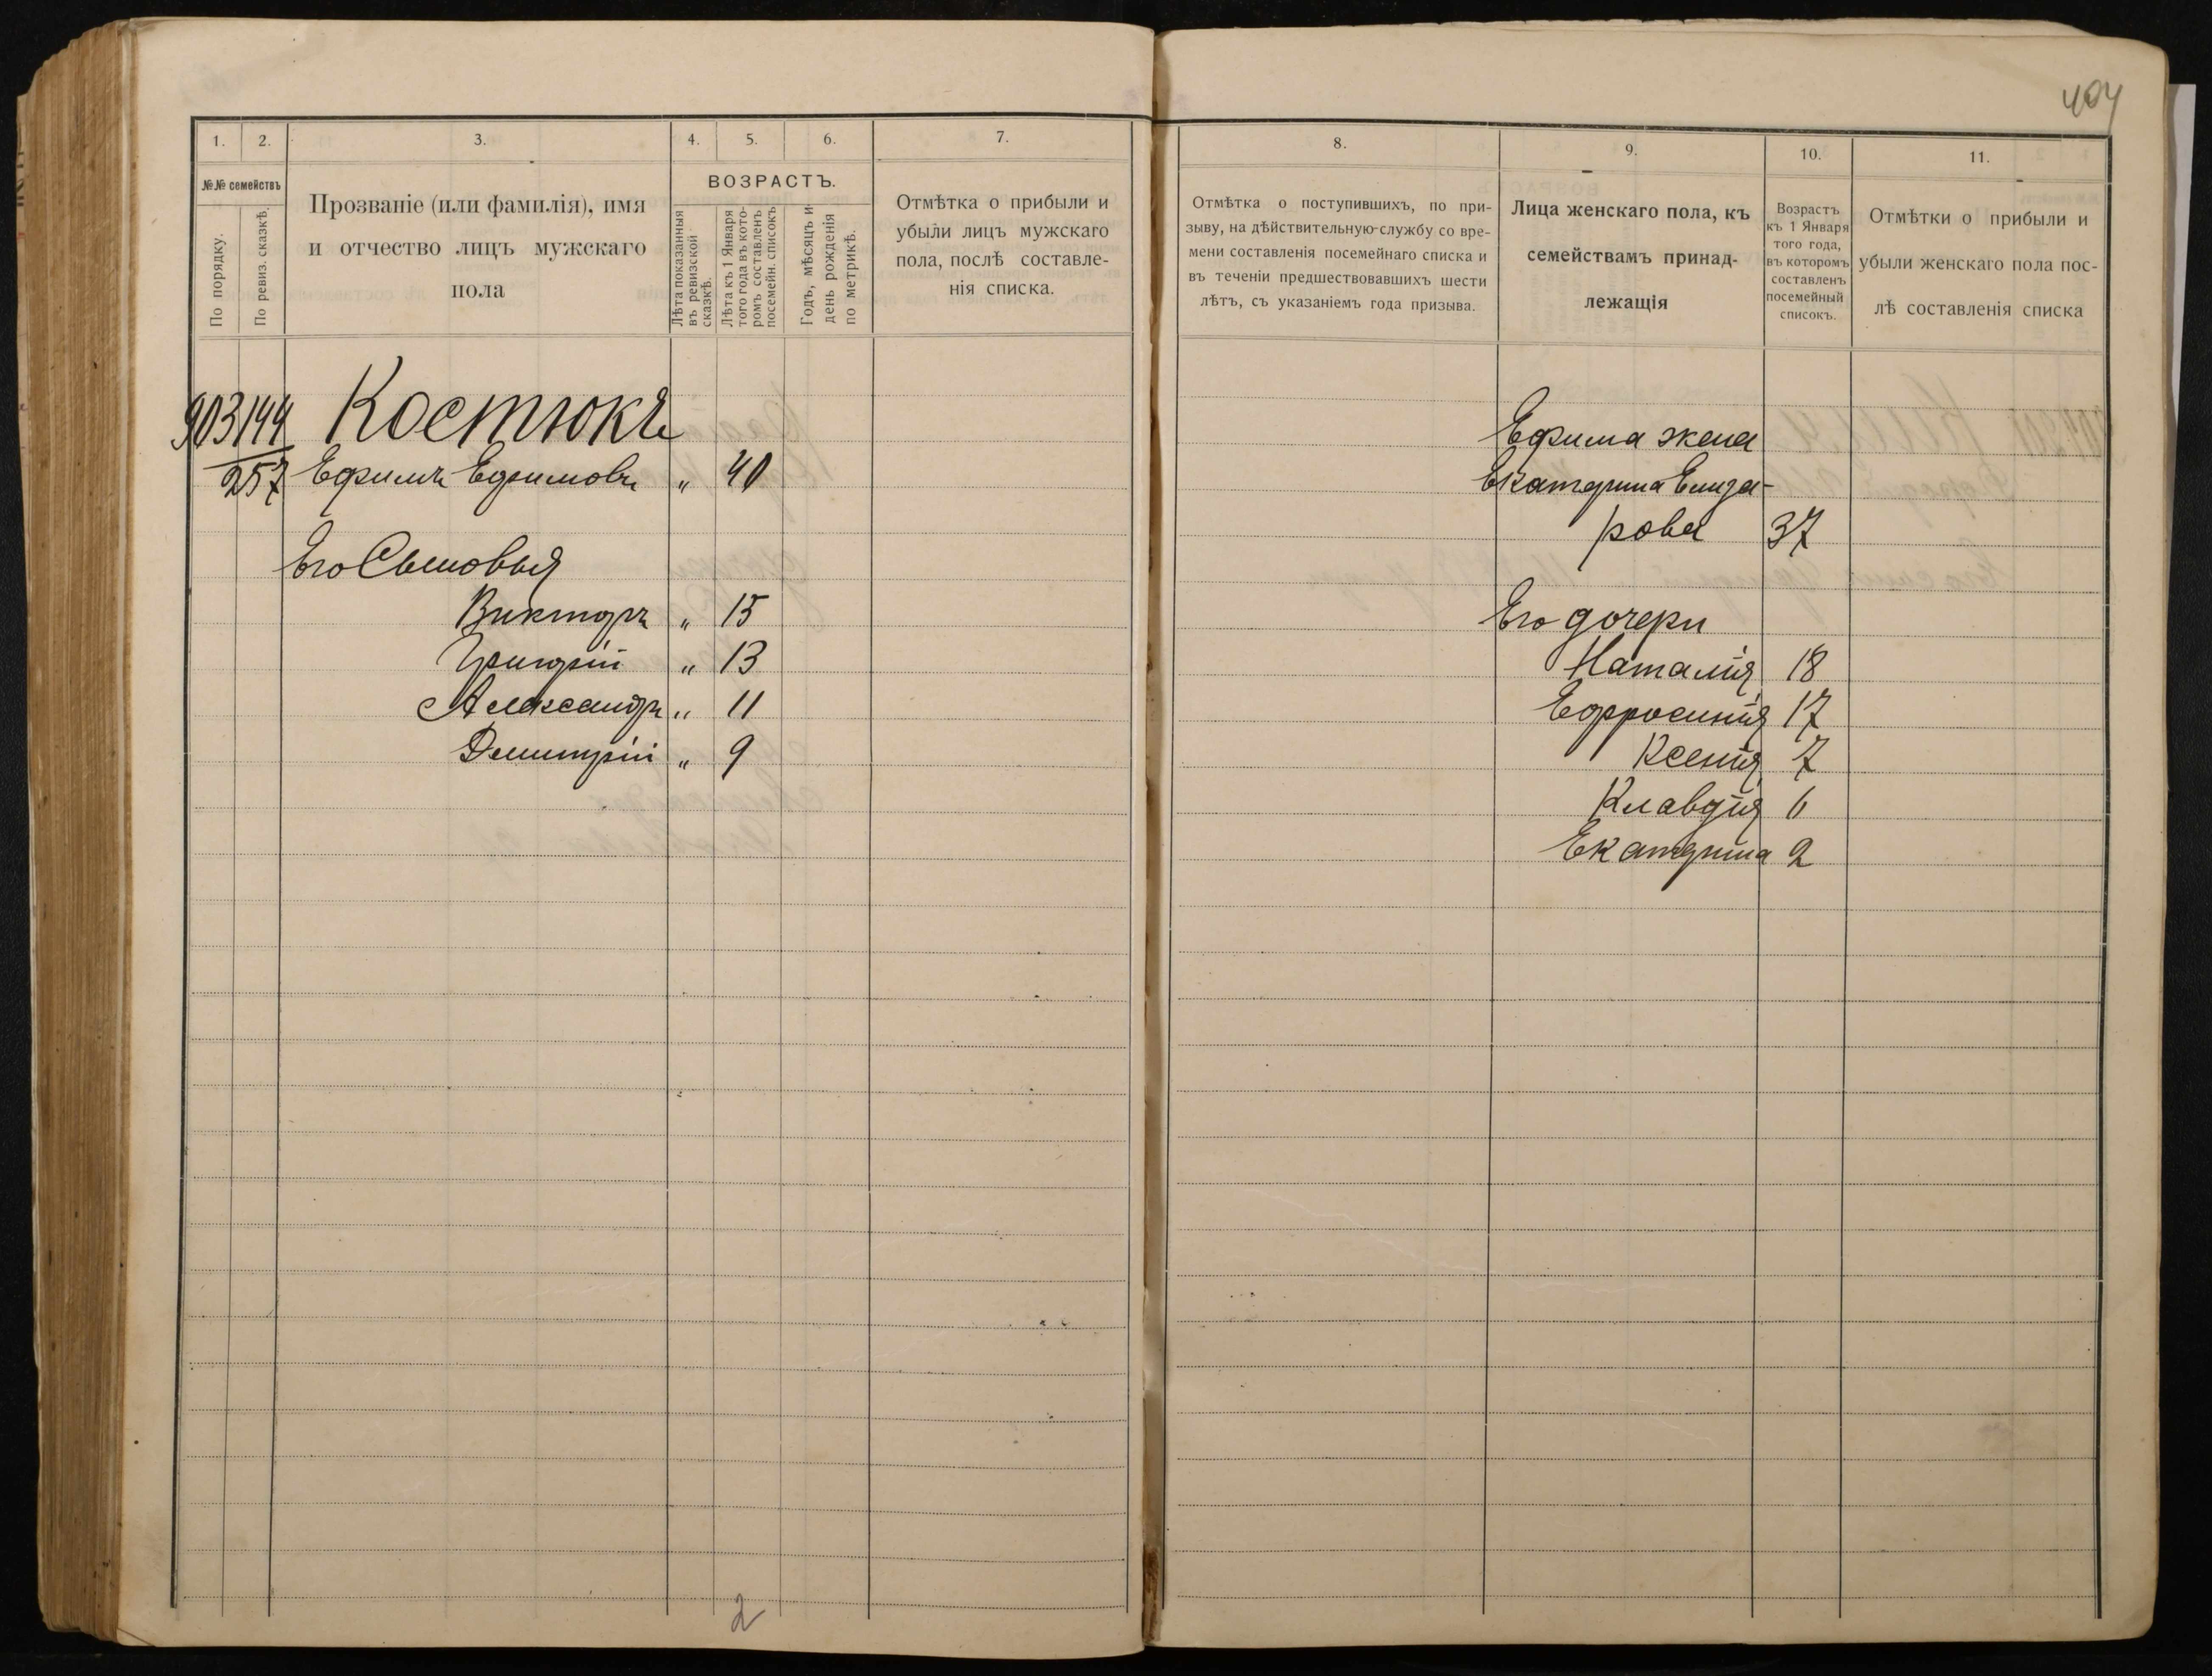 404
1. 2. 3. 4. 5. 6. 7.
№№ семействъ
По порядку.
По ревиз. сказкѣ.
Прозваніе (или фамилія), имя
и отчество лицъ мужскаго
пола
ВОЗРАСТЪ.
Лѣта показанныя
въ ревизской
сказкѣ.
Лѣта къ 1 Января
того года въ кото-
ромъ составленъ
посемейн. списокъ
Годъ, мѣсяцъ и
день рожденія
по метрикѣ.
Отмѣтка о прибыли и
убыли лицъ мужскаго
пола, послѣ составле-
нія списка.
903 144 Костюкъ
257 Ефимъ Ефимовъ „ 40
Его Сыновья
Викторъ „ 15
Григорій „ 13
Александръ „ 11
Димитрій „ 9
2
8. 9. 10. 11.
Отмѣтка о поступившихъ, по при-
зыву, на дѣйствительную службу со вре-
мени составленія посемейнаго списка и
въ теченіи предшествовавшихъ шести
лѣтъ, съ указаніемъ года призыва.
Лица женскаго пола, къ
семействамъ принад-
лежащія
Возрастъ
къ 1 Января
того года,
въ которомъ
составленъ
посемейный
списокъ.
Отмѣтки о прибыли и
убыли женскаго пола пос-
лѣ составленія списка
Ефима жена
Екатерина Елиза-
рова 37
Его дочери
Наталія 18
Ефросинія 17
Ксенія 7
Клавдія 6
Екатерина 2